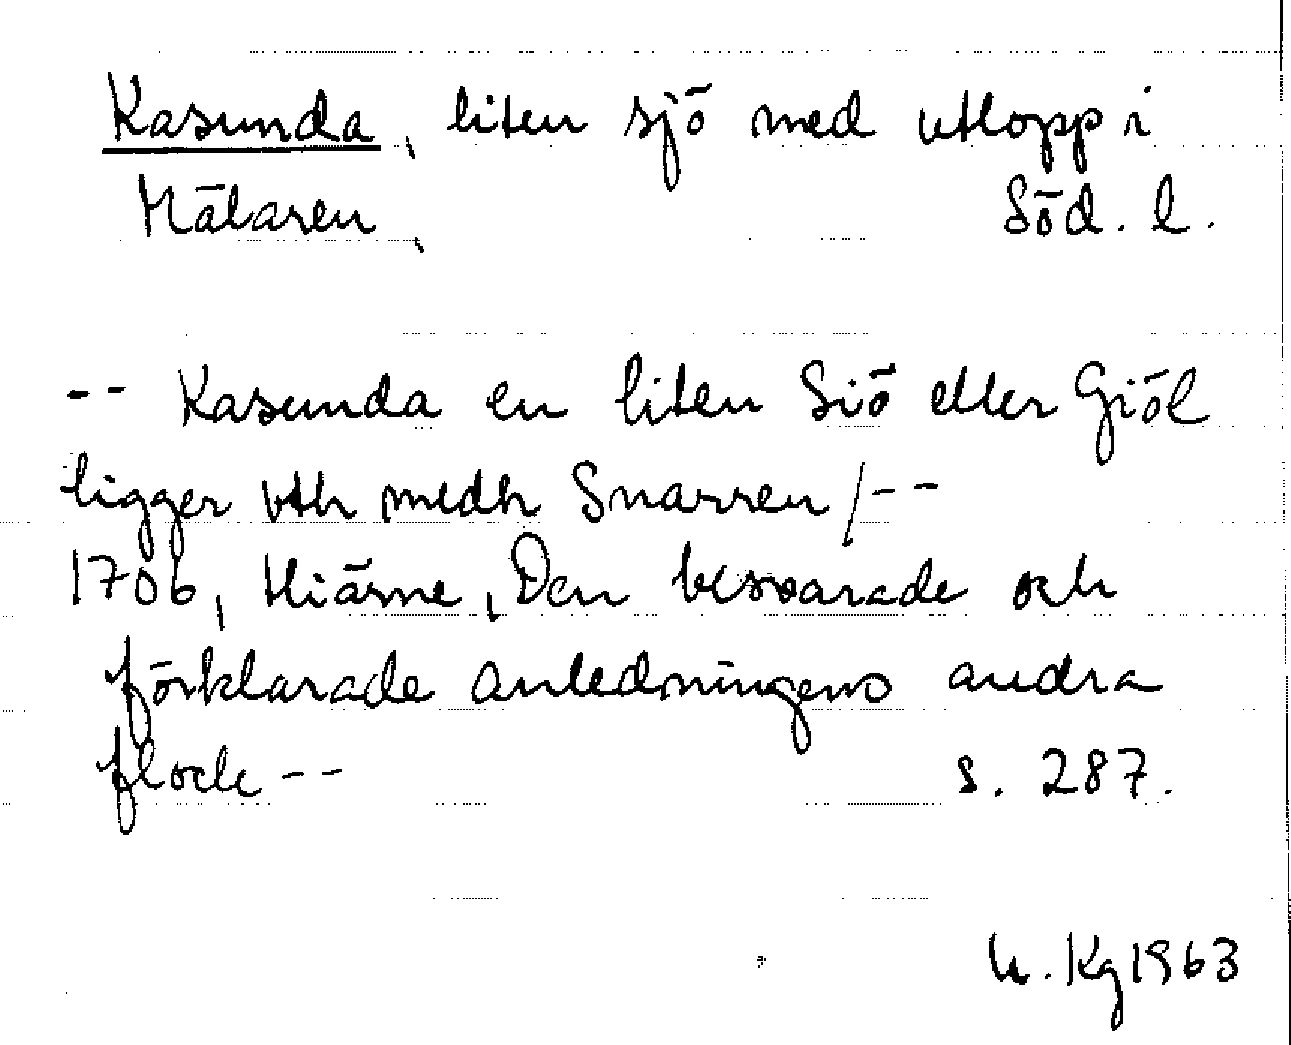 Kasunda, liten sjö med utlopp i
Mälaren, Söd. l.
-- Kasunda en liten Siö eller Giöl
ligger vth medh Snarren /--
1706, Hiärne, Den besvarade och
förklarade anledningens andra
flock -- s. 287.
U. Kg 1963